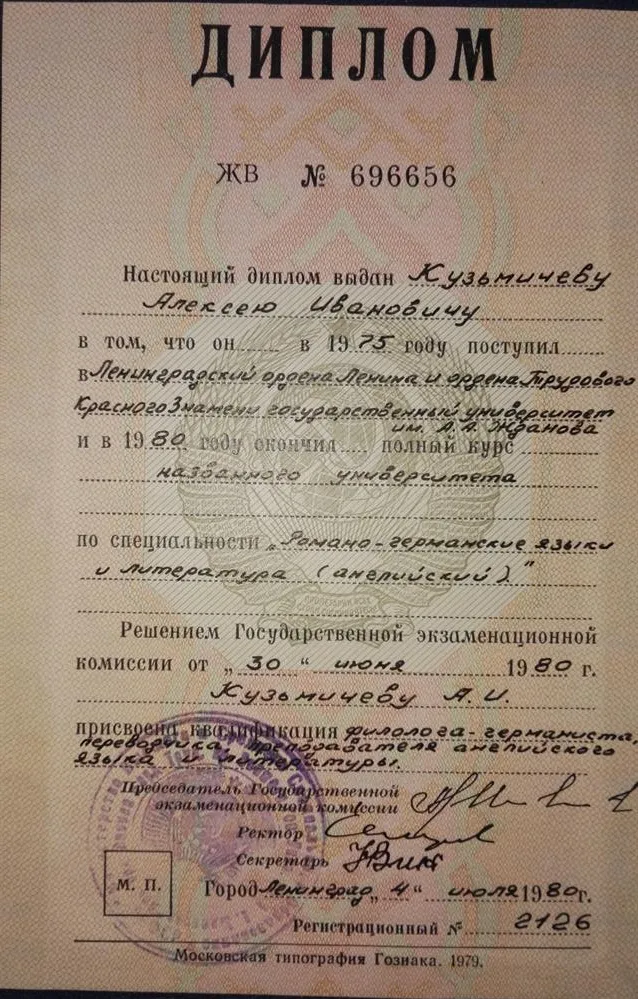 ДИПЛОМ
ЖВ № 696656
Настоящий диплом выдан Кузьмичеву
Алексею Ивановичу
в том, что он в 1975 году поступил
в Ленинградский ордена Ленина и ордена Трудового
Красного Знамени государственный университет
им. А.А. Жданова
и в 1980 году окончил полный курс
названного университета
по специальности „Романо-германские языки
и литература (английский)"
Решением Государственной экзаменационной
комиссии от „30" июня 1980 г.
Кузьмичеву А.И.
присвоена квалификация филолога-германиста,
переводчика, преподавателя английского
языка и литературы.
Председатель Государственной
экзаменационной комиссии
Ректор
Секретарь
М. П.
Город Ленинград „4" июля 1980 г.
Регистрационный № 2126
Московская типография Гознака. 1979.